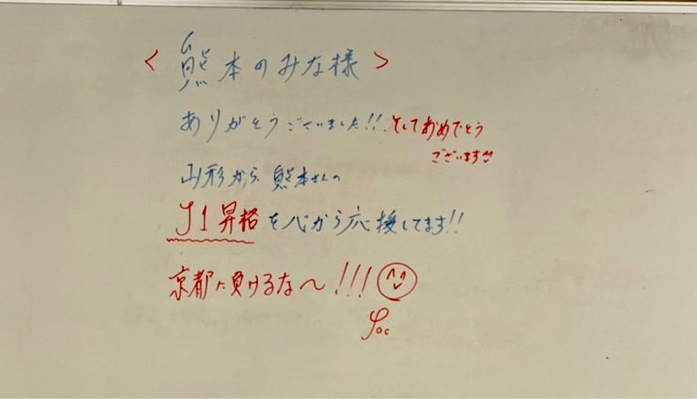 <熊本のみな様>
ありがとうございました!!そしておめでとう
ございます
山形から熊本さんの
J1昇格を心から応援してます!!
京都に負けるな〜!!!